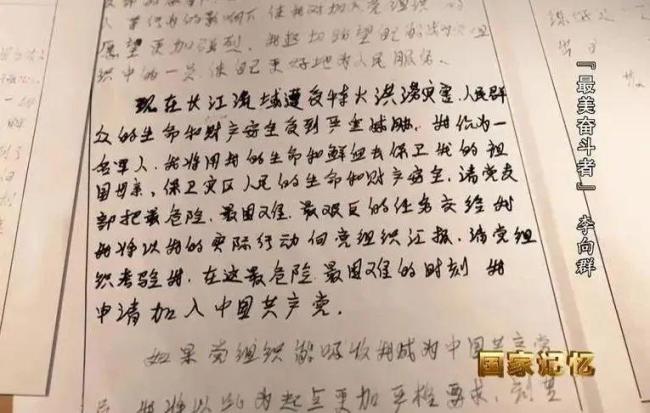 愿望更加强烈
织中的一员使自己更好地为人民服务。
现在长江流域遭受特大洪涝灾害，人民群
众的生命和财产安全受到严重威胁，我作为一
名军人，我将用我的生命和鲜血去保卫我的祖
国母亲，保卫灾区人民的生命和财产安全，请党支
部把最危险，最困难，最艰巨的任务交给我
我将以我的实际行动向党组织汇报，请党组
织考验我，在这最危险最困难的时刻 我
申请加入中国共产党。
如果党组织能吸收我成为中国共产党
我将以此为起点更加严格要求
『最美奋斗者』 李向群
国家记忆